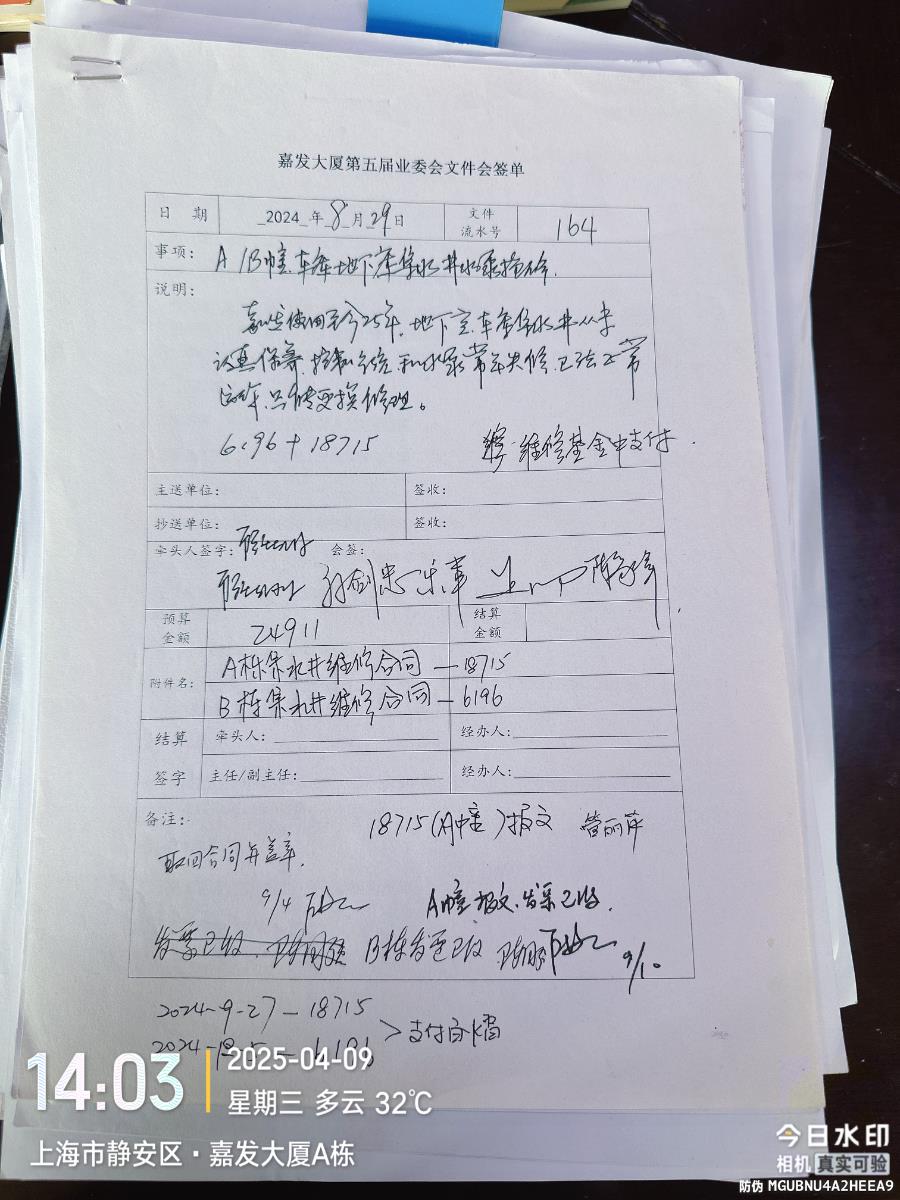 嘉发大厦第五届业委会文件会签单
日 期 2024 年 8 月 29 日 文件流水号 164
事项: A/B幢.车库地下库集水井水泵抢修.
说明:
嘉发使用至今25年,地下室.车库集水井从未
认真保养,控制系统和水泵常年失修,已无法正常
运作,只能更换修理。
6196+18715 维修基金中支付.
主送单位: 签收:
抄送单位: 签收:
牵头人签字: 会签:
预算金额 24911 结算金额
附件名: A栋集水井维修合同 — 18715
B栋集水井维修合同 — 6196
结算签字 牵头人: 经办人:
主任/副主任: 经办人:
备注: 18715(A幢)报文 管丽萍
取回合同并盖章.
9/4 A幢报文.发票已收.
发票已收. B栋发票已收 9/10
2024-9-27 — 18715
6196 > 支付
14:03 2025-04-09
星期三 多云 32℃
上海市静安区·嘉发大厦A栋
今日水印
相机 真实可验
防伪 MGUBNU4A2HEEA9